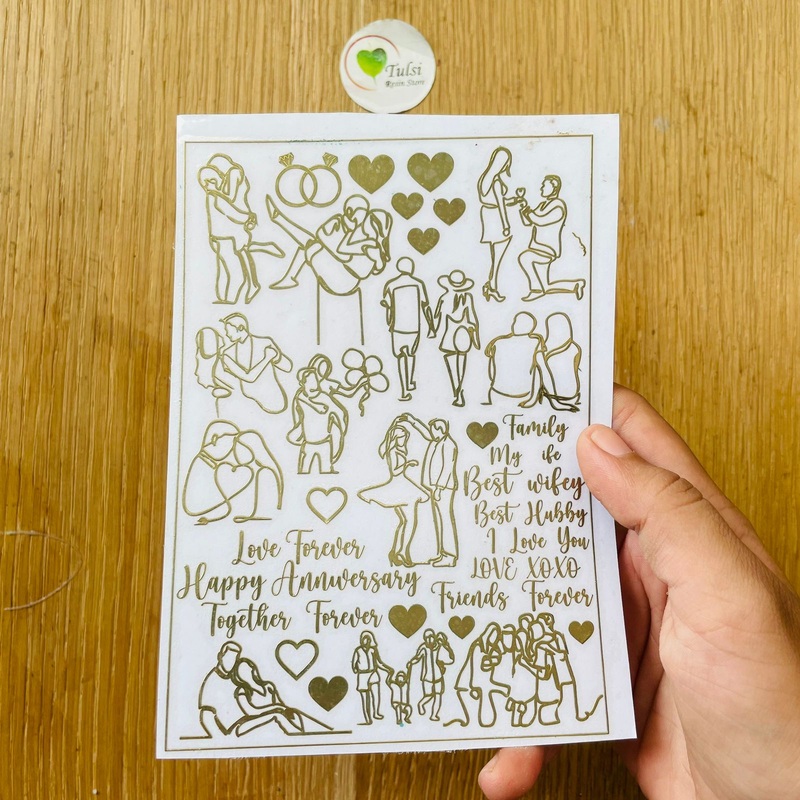 Tulsi
Resin Store
Family
My ife
Best wifey
Best Hubby
I Love You
LOVE XOXO
Friends Forever
Love Forever
Happy Anniversary
Together Forever